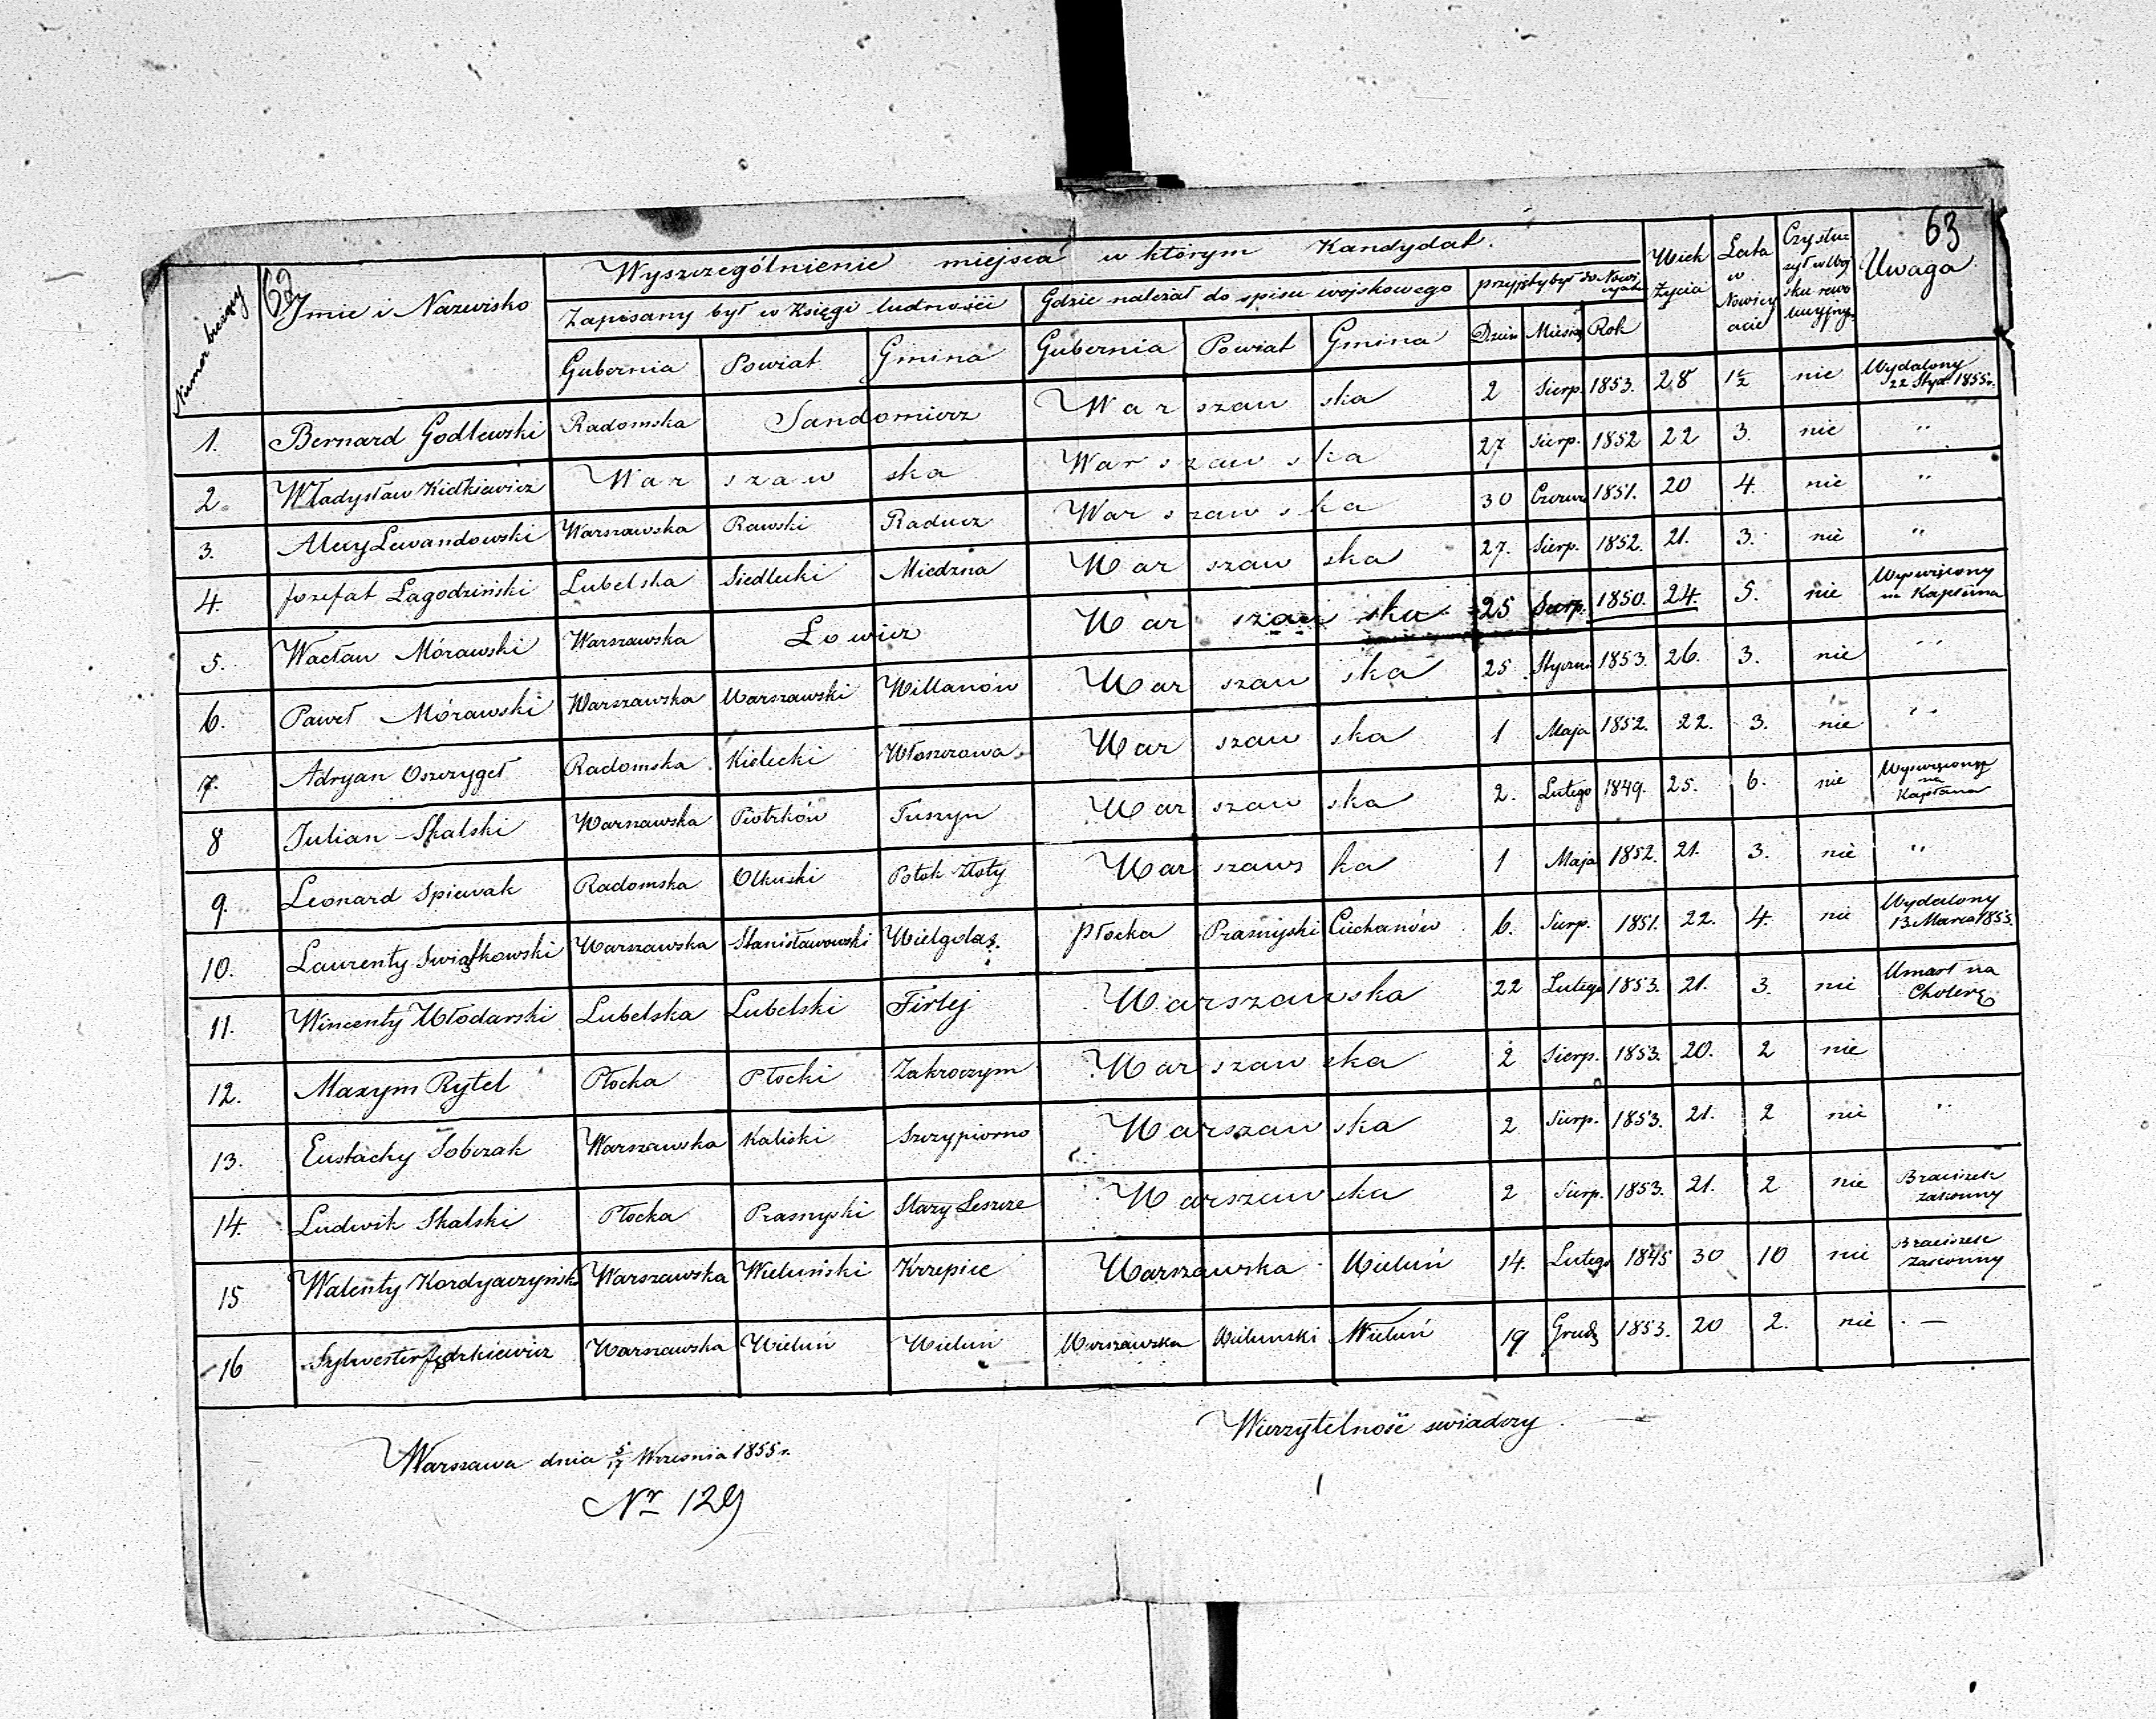 63
62
Wyszczególnienie miejsca w którym Kandydat.
Numer bieżący Imie i Nazwisko Zapisany był w Księgi ludności Gdzie należał do spisu wojskowego przyjęty był do Nowicyatu Wiek Życia Lata w Nowicyacie Czy służył w Wojsku rewolucyjnym Uwaga
Gubernia Powiat Gmina Gubernia Powiat Gmina Dzień Miesiąc Rok
1. Bernard Godlewski Radomska Sandomierz Warszawska 2 Sierp. 1853. 28 1½ nie Wydalony 22 Stycz. 1855r.
2. Władysław Kidkiewicz Warszawska Warszawska 27 Sierp. 1852 22 3. nie "
3. Alexy Lewandowski Warszawska Rawski Raducz Warszawska 30 Czerw. 1851. 20 4. nie "
4. Jozefat Łagodziński Lubelska Siedlecki Miedzna Warszawska 27. Sierp. 1852. 21. 3. nie "
5. Wacław Mórawski Warszawska Łowicz Warszawska 25 Sierp. 1850. 24. 5. nie Wyswięcony na Kapłana
6. Paweł Mórawski Warszawska Warszawski Willanów Warszawska 25 Styczn. 1853. 26. 3. nie "
7. Adryan Oszczygeł Radomska Kielecki Włoszczowa Warszawska 1 Maja 1852. 22. 3. nie "
8 Julian Skalski Warszawska Piotrków Tuszyn Warszawska 2. Lutego 1849. 25. 6. nie Wyswięcony na Kapłana
9. Leonard Spiewak Radomska Olkuski Potok Złoty Warszawska 1 Maja 1852. 21. 3. nie "
10. Laurenty Swiątkowski Warszawska Stanisławowski Wielgolas. Płocka Prasnyski Ciechanów 6. Sierp. 1851. 22. 4. nie Wydalony 13. Marca 1855.
11. Wincenty Włodarski Lubelska Lubelski Firlej Warszawska 22 Lutego 1853. 21. 3. nie Umarł na Cholerę
12. Maxym Rytel Płocka Płocki Zakroczym Warszawska 2 Sierp. 1853. 20. 2 nie
13. Eustachy Sobczak Warszawska Kaliski Szczypiorno Warszawska 2 Sierp. 1853. 21. 2 nie "
14. Ludwik Skalski Płocka Prasnyski Stary Leszcze Warszawska 2 Sierp. 1853. 21. 2 nie Braciszek zakonny
15 Walenty Kordyaczyński Warszawska Wieluński Krzepice Warszawska Wieluń 14. Lutego 1845 30 10 nie Braciszek zakonny
16 Sylwester Jędrkiewicz Warszawska Wieluń Wieluń Warszawska Wielunski Wieluń 19 Grudz 1853. 20 2. nie —
Wierzytelność swiadczy
Warszawa dnia 5/17 Wrzesnia 1855r.
Nr 129